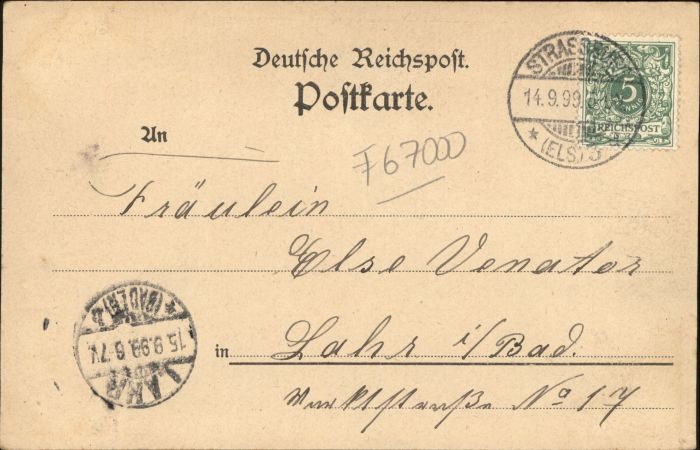 Deutsche Reichspost.
Postkarte.
STRASSBURG
14.9.99
* (ELS) *
5
REICHSPOST
An
F 67000
Fräulein
Else Venator
in Lahr i/Bad.
Marktstraße No 17
LAHR
15.9.99. 6-7V.
* (BADEN) 2